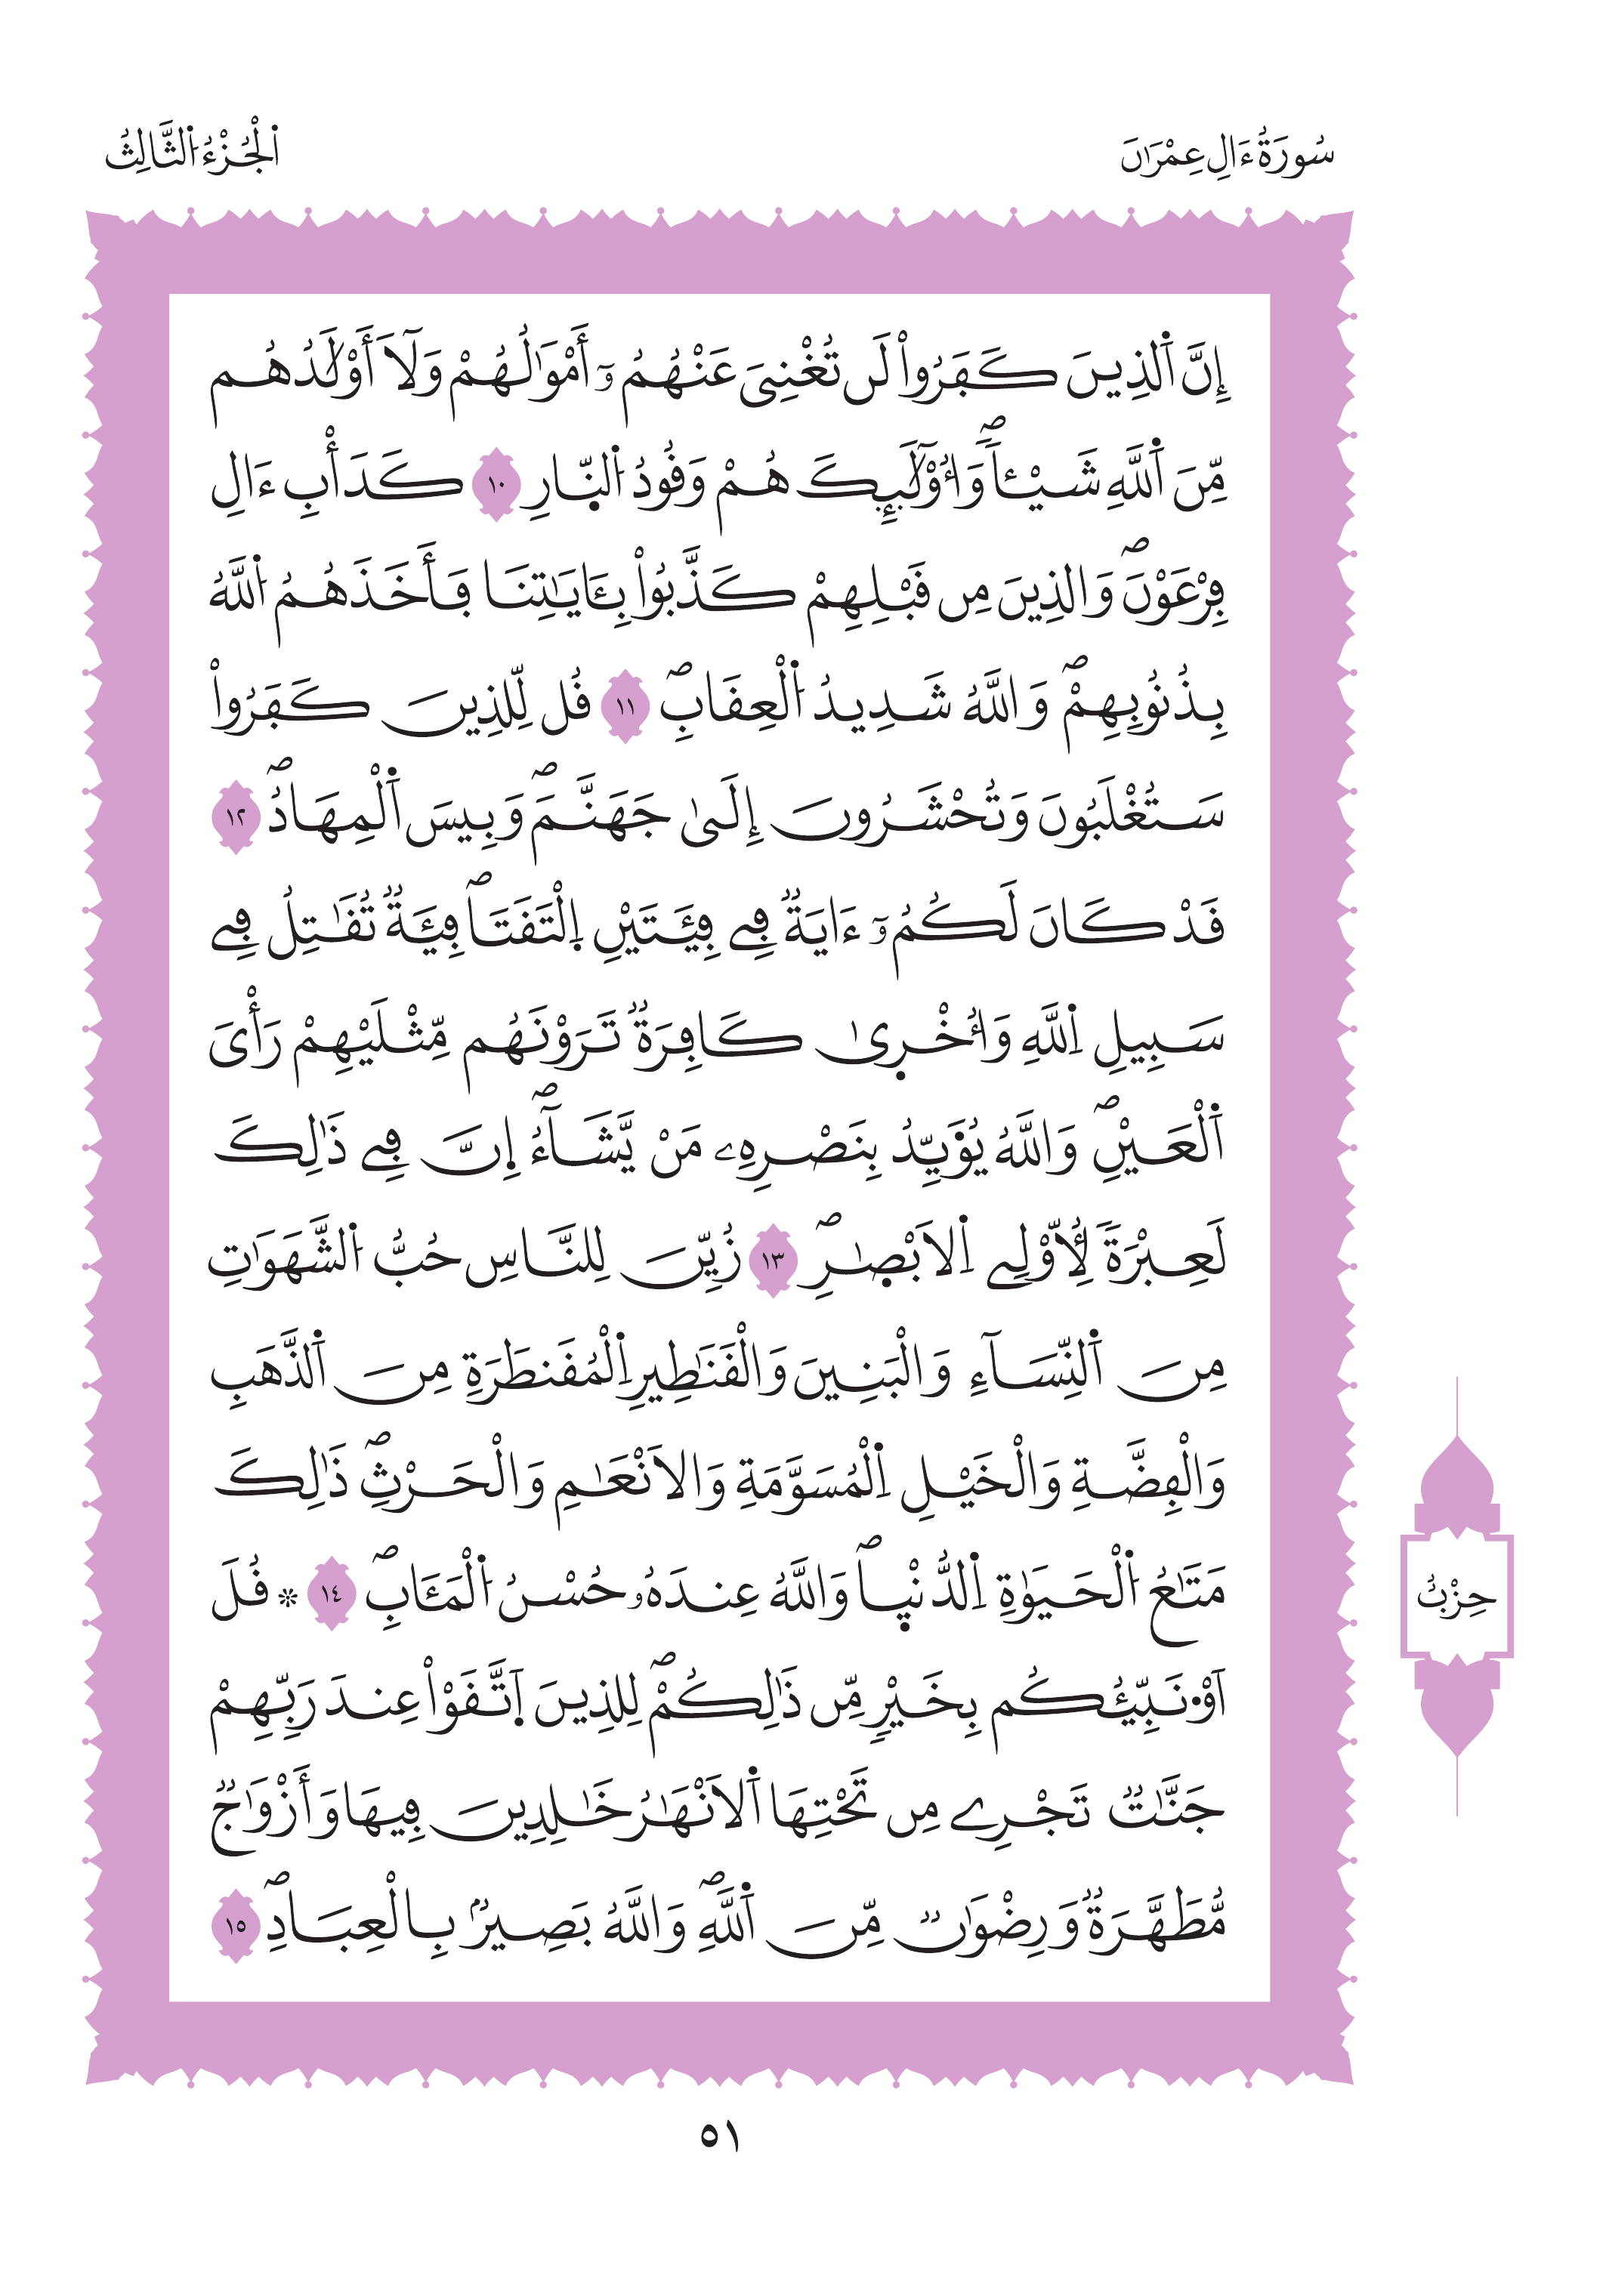 سُورَةُ ءَالِ عِمْرَانَ
اَ۬لْجُزْءُ اُ۬لثَّالِثُ
إِنَّ اَ۬لذِينَ كَفَرُواْ لَن تُغْنِيَ عَنْهُمُۥٓ أَمْوَٰلُهُمْ وَلَآ أَوْلَٰدُهُم
مِّنَ اَ۬للَّهِ شَيْـٔاٗۖ وَأُوْلَٰٓئِكَ هُمْ وَقُودُ اُ۬لنّ۪ارِ ١٠ كَدَأْبِ ءَالِ
فِرْعَوْنَۖ وَالذِينَ مِن قَبْلِهِمْ كَذَّبُواْ بِـَٔايَٰتِنَا فَأَخَذَهُمُ اُ۬للَّهُ
بِذُنُوبِهِمْۖ وَاللَّهُ شَدِيدُ اُ۬لْعِقَابِۖ ١١ قُل لِّلذِينَ كَفَرُواْ
سَتُغْلَبُونَ وَتُحْشَرُونَ إِلَىٰ جَهَنَّمَۖ وَبِيسَ اَ۬لْمِهَادُۖ ١٢
قَدْ كَانَ لَكُمُۥٓ ءَايَةٞ فِے فِئَتَيْنِ اِ۪لْتَقَتَاۖ فِئَةٞ تُقَٰتِلُ فِے
سَبِيلِ اِ۬للَّهِ وَأُخْر۪ىٰ كَافِرَةٞ تَرَوْنَهُم مِّثْلَيْهِمْ رَأْيَ
اَ۬لْعَيْنِۖ وَاللَّهُ يُؤَيِّدُ بِنَصْرِهِۦ مَنْ يَّشَآءُۖ ا۪نَّ فِے ذَٰلِكَ
لَعِبْرَةٗ لِّأُوْلِے اِ۬لَابْصٰ۪رِۖ ١٣ زُيِّنَ لِلنَّاسِ حُبُّ اُ۬لشَّهَوَٰتِ
مِنَ اَ۬لنِّسَآءِ وَالْبَنِينَ وَالْقَنَٰطِيرِ اِ۬لْمُقَنطَرَةِ مِنَ اَ۬لذَّهَبِ
وَالْفِضَّةِ وَالْخَيْلِ اِ۬لْمُسَوَّمَةِ وَالَانْعَٰمِ وَالْحَرْثِۖ ذَٰلِكَ
مَتَٰعُ اُ۬لْحَيَوٰةِ اِ۬لدُّنْي۪اۖ وَاللَّهُ عِندَهُۥ حُسْنُ اُ۬لْمَـَٔابِۖ ١٤ ۞ قُلَ
اَو۟نَبِّئُكُم بِخَيْرٖ مِّن ذَٰلِكُمْۖ لِلذِينَ اَ۪تَّقَوْاْ عِندَ رَبِّهِمْ
جَنَّٰتٞ تَجْرِے مِن تَحْتِهَا اَ۬لَانْهَٰرُ خَٰلِدِينَ فِيهَا وَأَزْوَٰجٞ
مُّطَهَّرَةٞ وَرِضْوَٰنٞ مِّنَ اَ۬للَّهِۖ وَاللَّهُ بَصِيرُۢ بِالْعِبَادِۖ ١٥
حِزْبُ
٥١